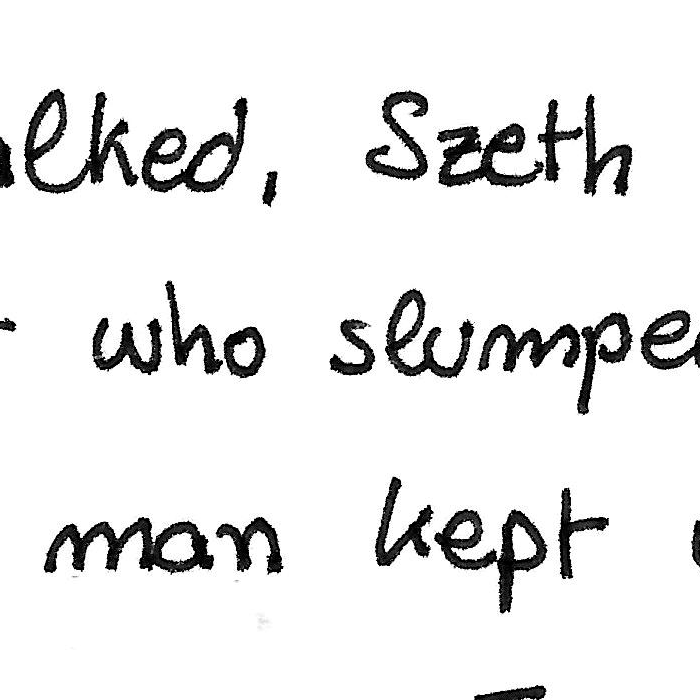 alked, Szeth
who slumped
man kept